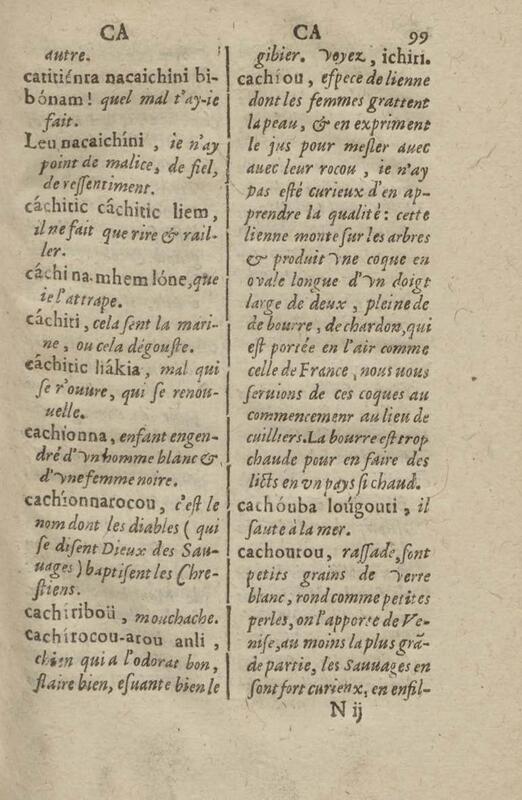 CA
autre.
catitiénra nacaichini bi-
bónam! quel mal t'ay-ie
fait.
Leu nacaichíni , ie n'ay
point de malice, de fiel,
de ressentiment.
cáchitic câchitic liem,
il ne fait que rire & rail-
ler.
câchi na mhem lóne, que
ie l'attrape.
câchiti, cela sent la mari-
ne , ou cela dégouste.
câchitic liákia , mal qui
se r'ouure, qui se renou-
uelle.
cachíonna, enfant engen-
dré d'vn homme blanc &
d'vne femme noire.
cachíonnarocou, c'est le
nom dont les diables ( qui
se disent Dieux des Sau-
uages ) baptisent les Chre-
stiens.
cachíriboü , mouchache.
cachírocou-arou anli ,
chien qui a l'odorat bon,
flaire bien, esuante bien le
CA 99
gibier. Voyez , ichiri.
cachíou , espece de lienne
dont les femmes grattent
la peau, & en expriment
le jus pour mesler auec
auec leur rocou , ie n'ay
pas esté curieux d'en ap-
prendre la qualité : cette
lienne monte sur les arbres
& produit vne coque en
ovale longue d'vn doigt
large de deux , pleine de
de bourre , de chardon, qui
est portée en l'air comme
celle de France , nous nous
seruions de ces coques au
commencemenr au lieu de
cuilliers. La bourre est trop
chaude pour en faire des
licts en vn pays si chaud.
cachóuba loúgouti , il
saute à la mer.
cachourou, rassade, sont
petits grains de verre
blanc, rond comme petites
perles, on l'apporte de Ve-
nise, au moins la plus grã-
de partie, les Sauuages en
sont fort curieux, en enfil-
N ij